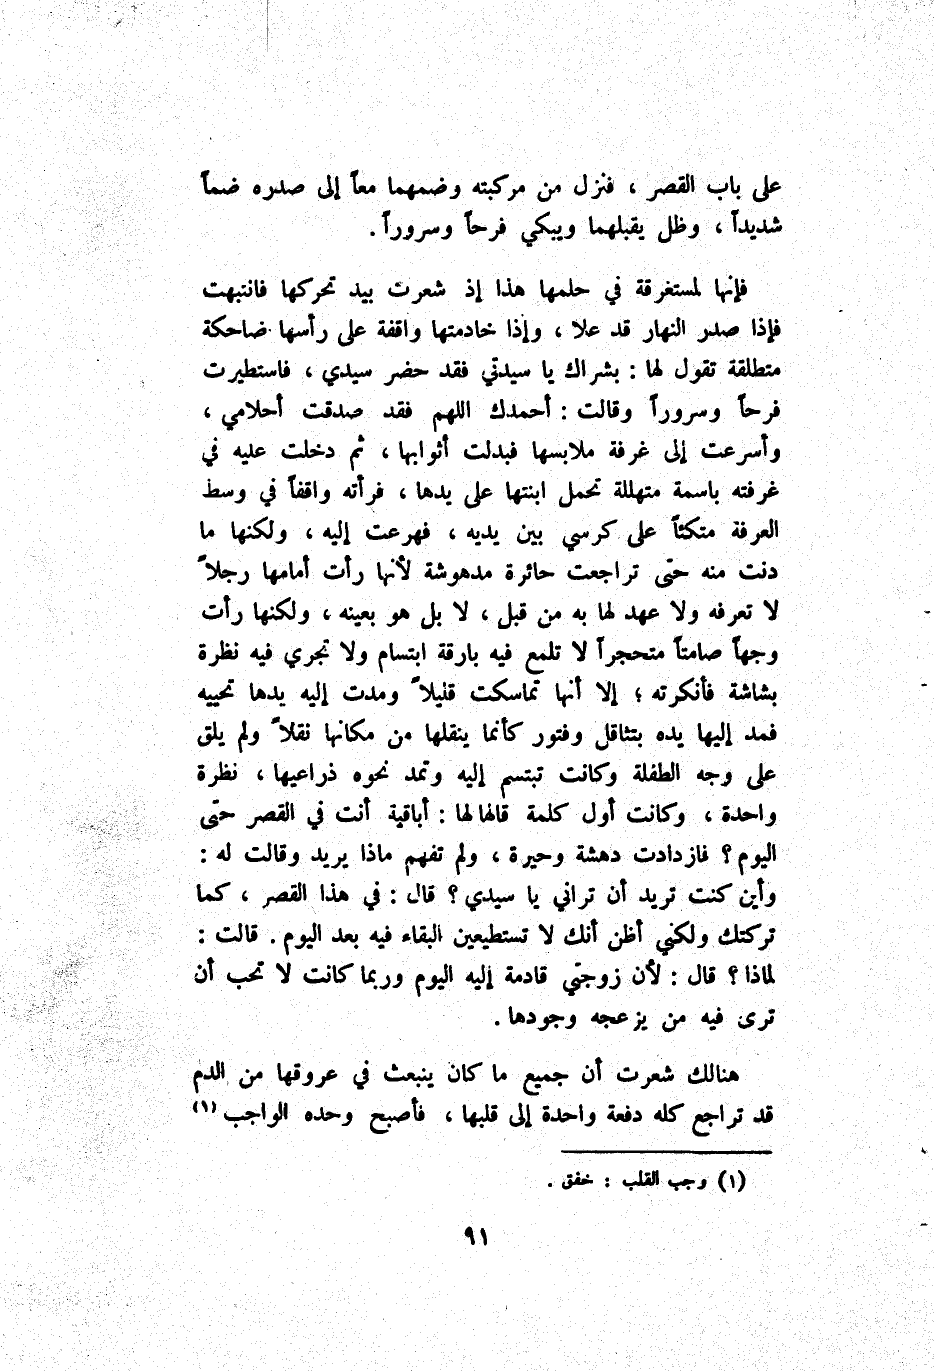 على باب القصر ، فنزل من مركبته وضمهما معاً إلى صدره ضماً
شديداً ، وظل يقبلهما ويبكي فرحاً وسروراً .
فإنها لمستغرقة في حلمها هذا إذ شعرت بيد تحركها فانتبهت
فإذا صدر النهار قد علا ، وإذا خادمتها واقفة على رأسها ضاحكة
متطلقة تقول لها : بشراك يا سيدتي فقد حضر سيدي ، فاستطيرت
فرحاً وسروراً وقالت : أحمدك اللهم فقد صدقت أحلامي ،
وأسرعت إلى غرفة ملابسها فبدلت أثوابها ، ثم دخلت عليه في
غرفته باسمة متهللة تحمل ابنتها على يدها ، فرأته واقفاً في وسط
العرفة متكئاً على كرسي بين يديه ، فهرعت إليه ، ولكنها ما
دنت منه حتى تراجعت حائرة مدهوشة لأنها رأت أمامها رجلاً
لا تعرفه ولا عهد لها به من قبل ، لا بل هو بعينه ، ولكنها رأت
وجهاً صامتاً متحجراً لا تلمع فيه بارقة ابتسام ولا تجري فيه نظرة
بشاشة فأنكرته ؛ إلا أنها تماسكت قليلاً ومدت إليه يدها تحييه
فمد إليها يده بتثاقل وفتور كأنما ينقلها من مكانها نقلاً ولم يلق
على وجه الطفلة وكانت تبتسم إليه وتمد نحوه ذراعيها ، نظرة
واحدة ، وكانت أول كلمة قالها لها : أباقية أنت في القصر حتى
اليوم ؟ فازدادت دهشة وحيرة ، ولم تفهم ماذا يريد وقالت له :
وأين كنت تريد أن تراني يا سيدي ؟ قال : في هذا القصر ، كما
تركتك ولكني أظن أنك لا تستطيعين البقاء فيه بعد اليوم . قالت :
لماذا ؟ قال : لأن زوجتي قادمة إليه اليوم وربما كانت لا تحب أن
ترى فيه من يزعجه وجودها .
هنالك شعرت أن جميع ما كان ينبعث في عروقها من الدم
قد تراجع كله دفعة واحدة إلى قلبها ، فأصبح وحده الواجب (١)
(١) وجب القلب : خفق .
٩١